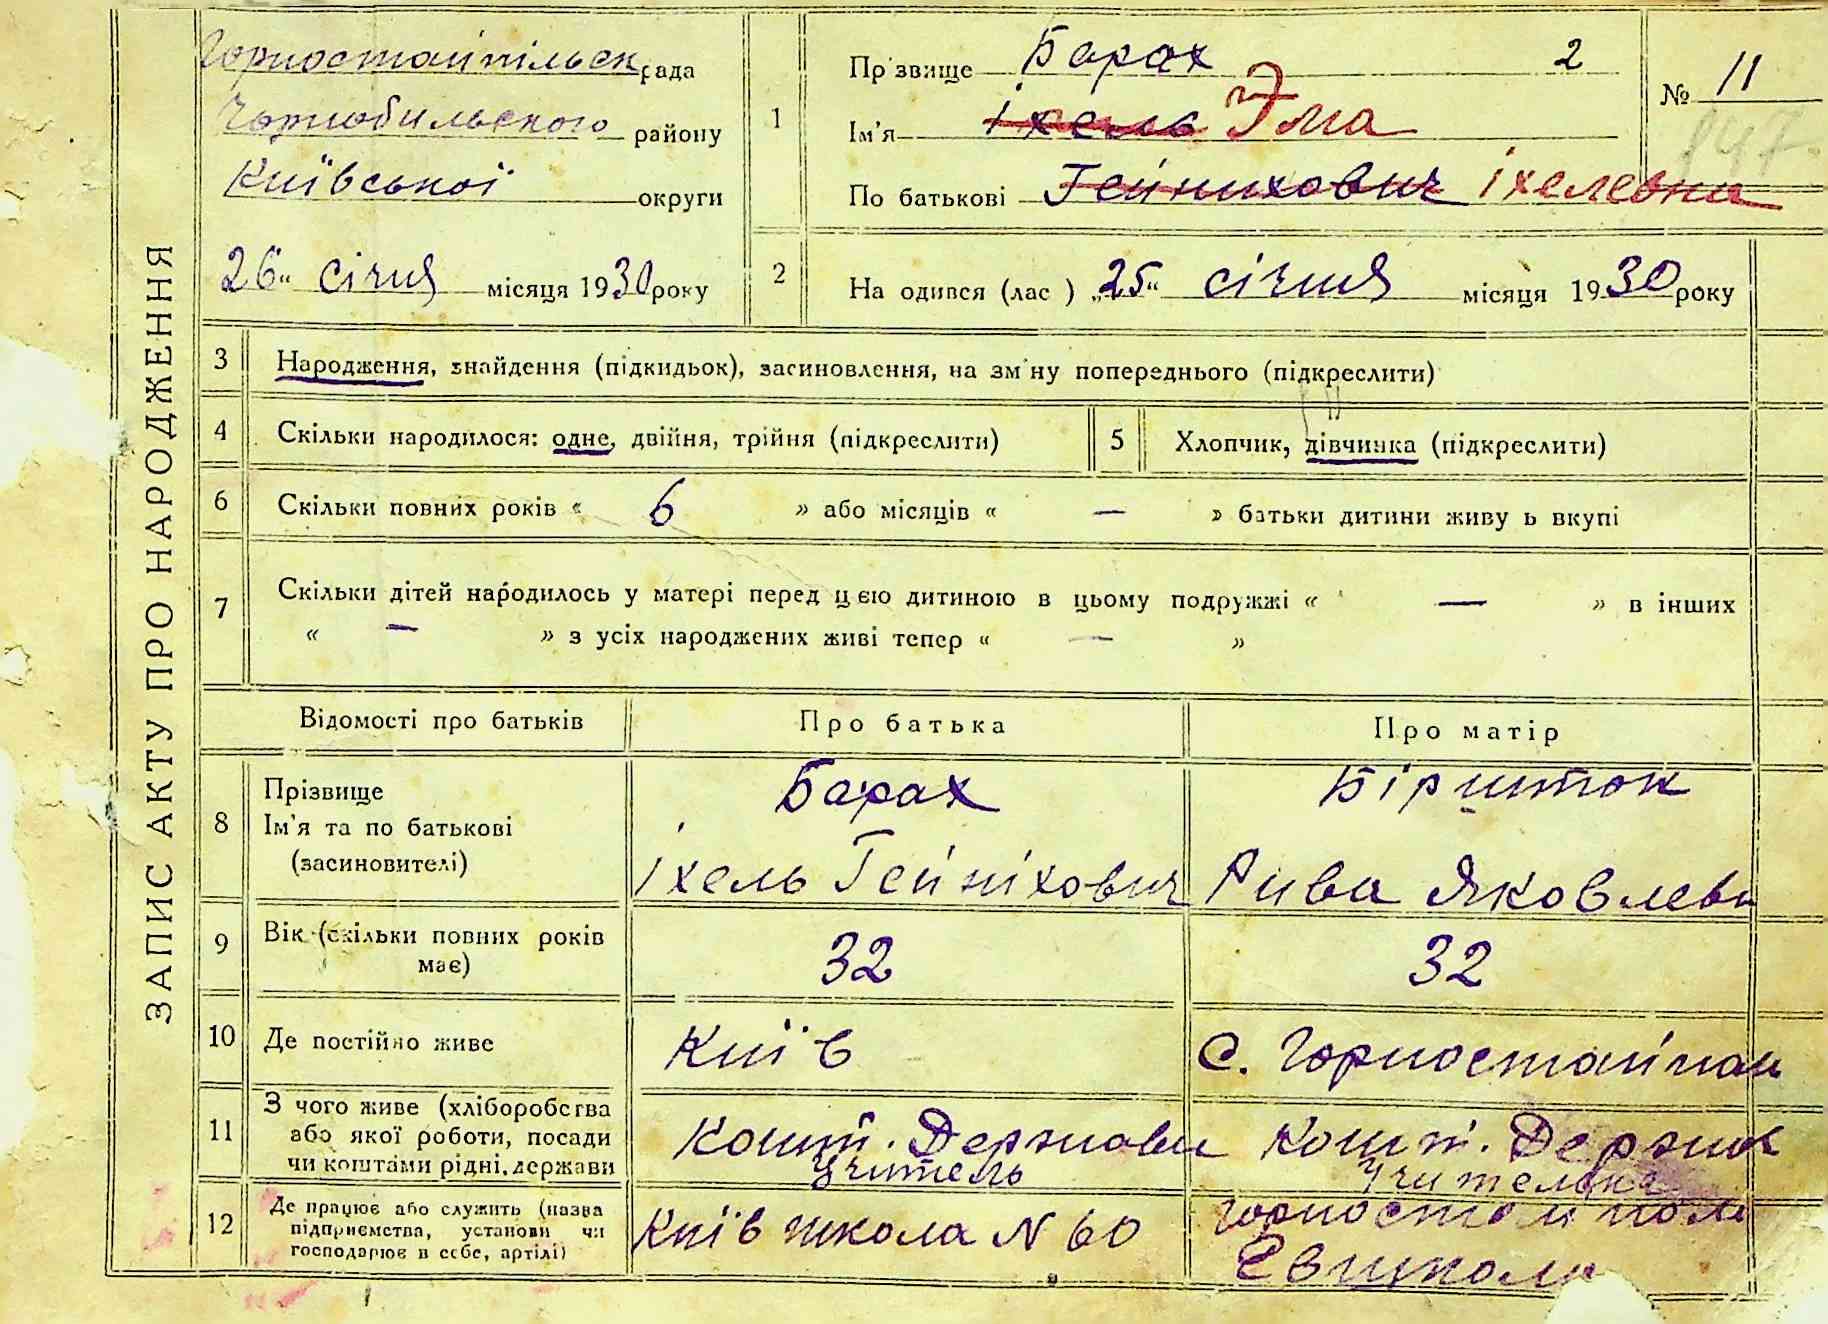 ЗАПИС АКТУ ПРО НАРОДЖЕННЯ
Горностайпільск рада
Чорнобильского району
Київської округи
26 січня місяця 1930 року
1
Прзвище Барах 2
Ім'я Іхель Эма
По батькові Гейнихович Іхелевна
№ 11
2 На одився (лас ) „25“ січня місяця 1930 року
3 Народження, знайдення (підкидьок), засиновлення, на зміну попереднього (підкреслити)
4 Скільки народилося: одне, двійня, трійня (підкреслити)
5 Хлопчик, дівчинка (підкреслити)
6 Скільки повних років « 6 » або місяців « — » батьки дитини живу ь вкупі
7 Скільки дітей народилось у матері перед цією дитиною в цьому подружжі « — » в інших
« — » з усіх народжених живі тепер « — »
Відомості про батьків Про батька Про матір
8 Прізвище
Ім'я та по батькові
(засиновителі)
Барах
Іхель Гейніхович
Біршток
Рива Яковлевн
9 Вік (скільки повних років
має)
32 32
10 Де постійно живе Київ С. Горностайпол
11 З чого живе (хліборобства
або якої роботи, посади
чи коштами рідні, держави
Кошт. Держави
учитель
Кошт. Держав
Учителька
12 Де працює або служить (назва
підприємства, установи чи
господарює в себе, артілі)
Київ школа N 60
Горностайполь
Євшкола